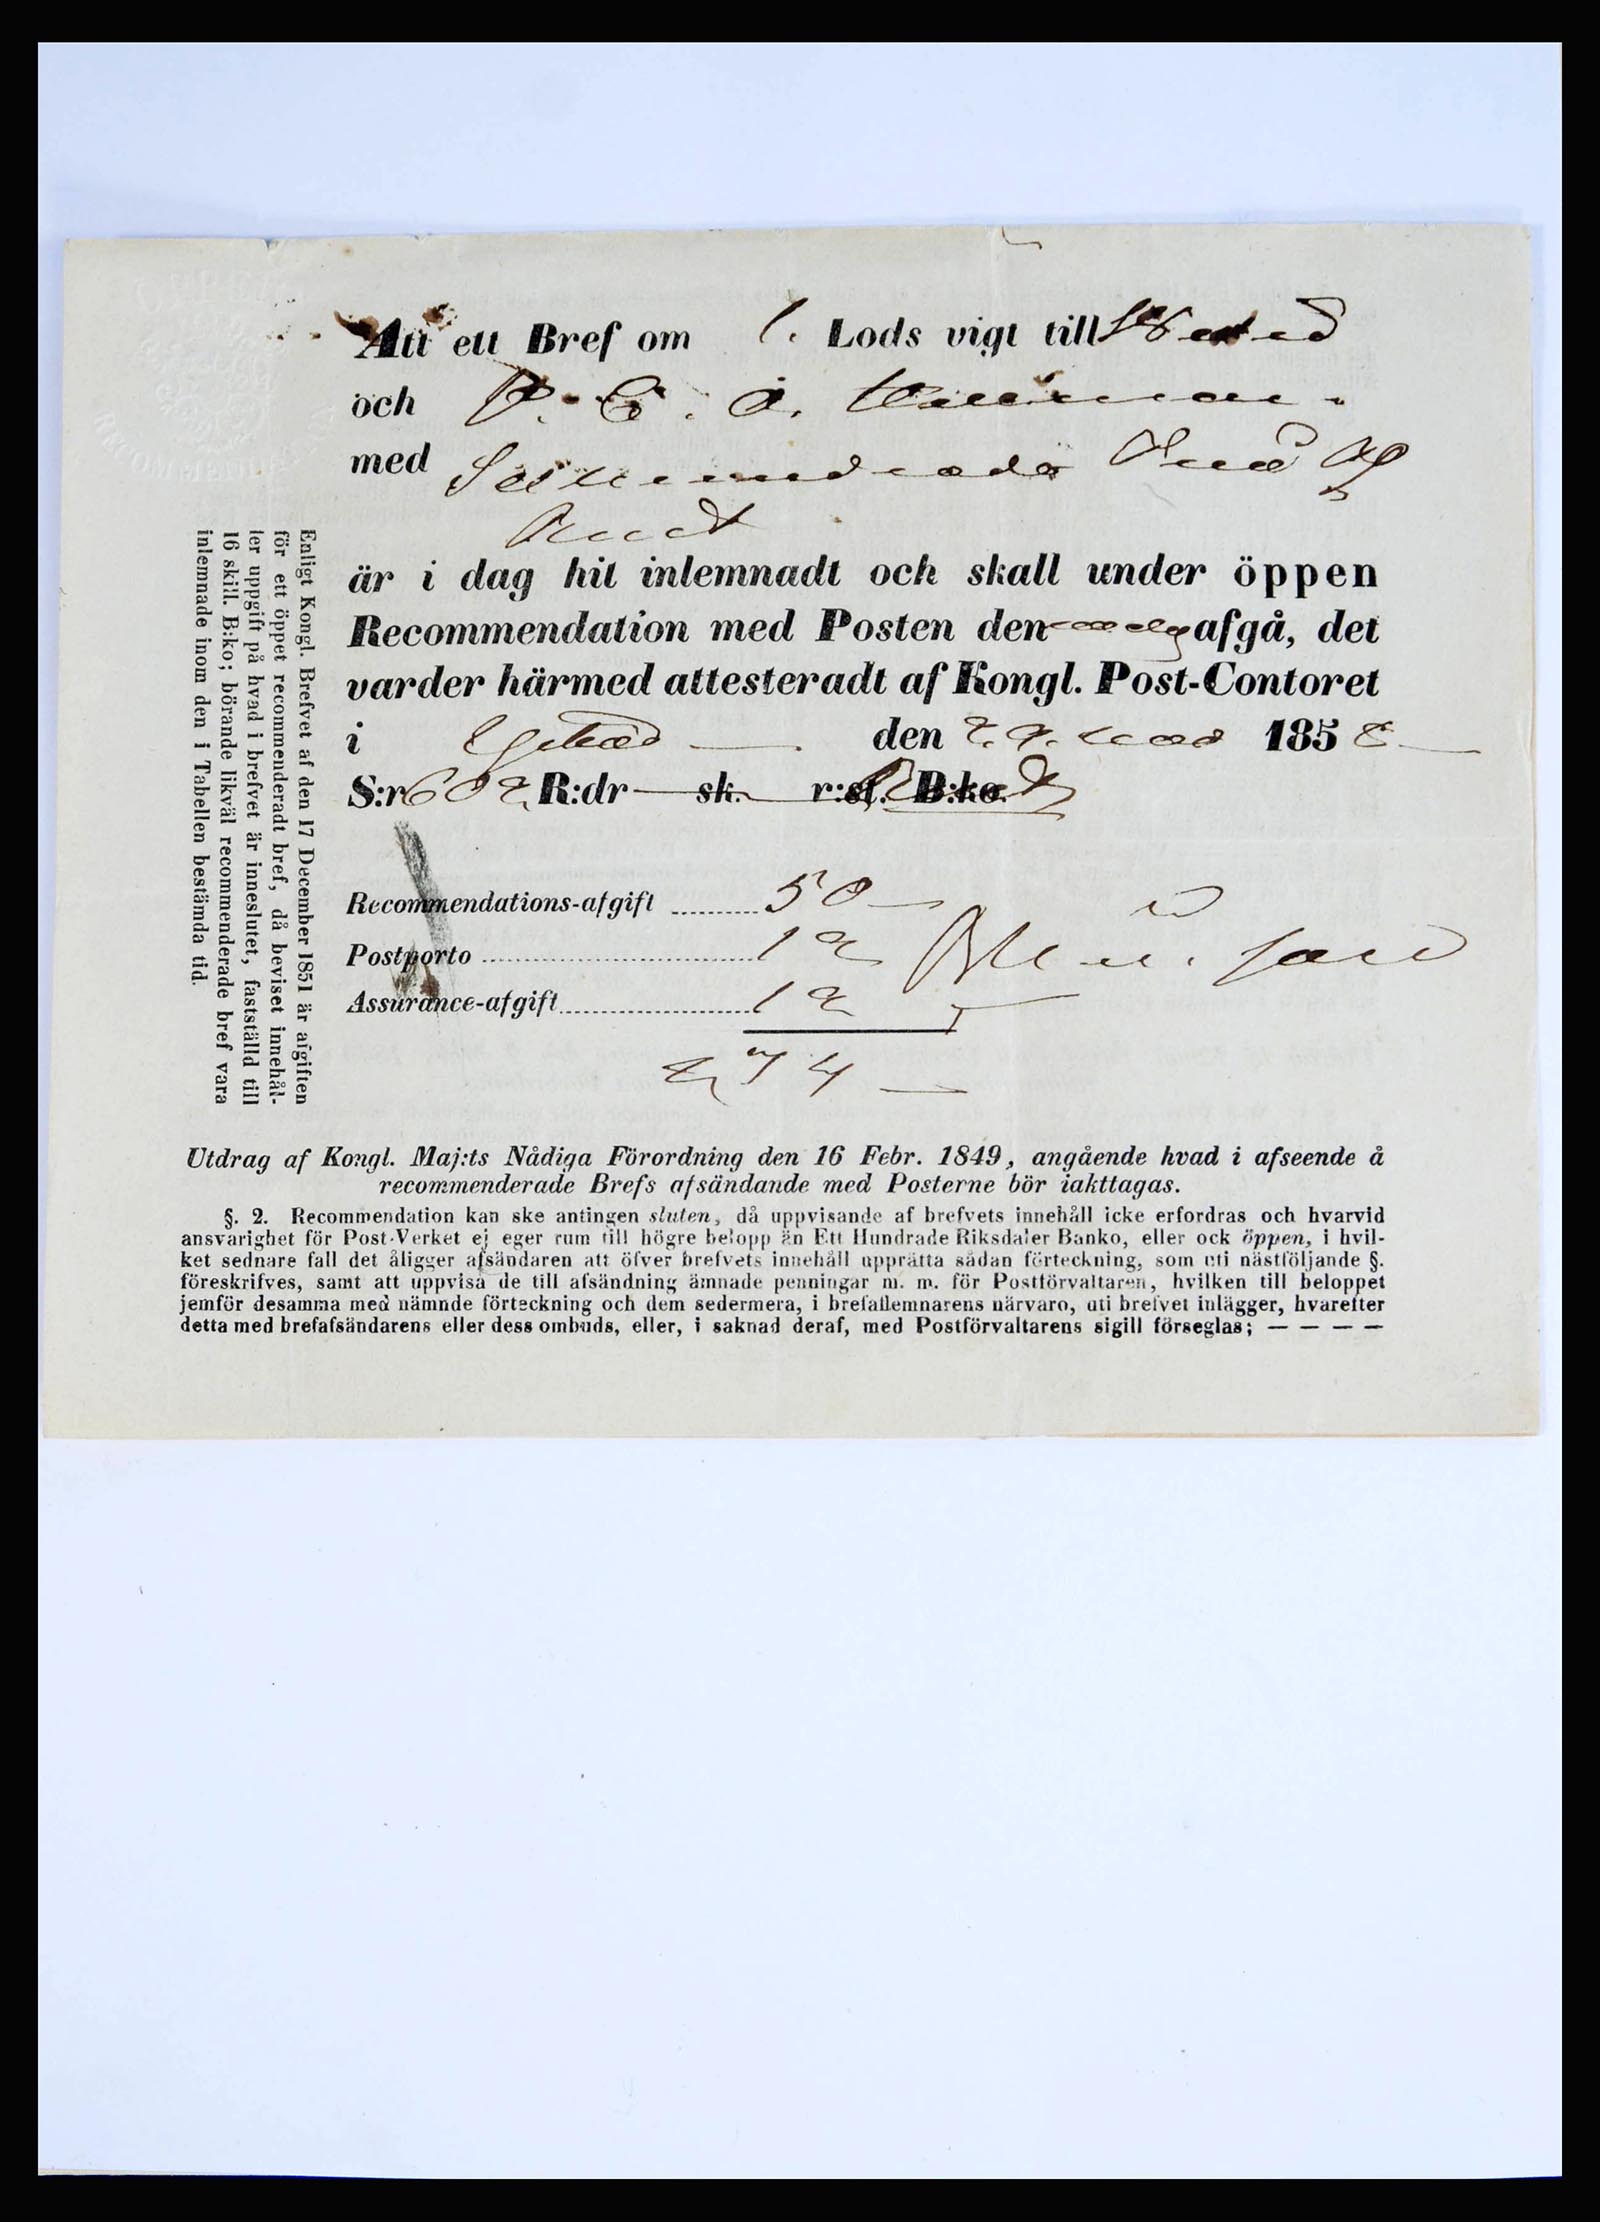 Att ett Bref om 1. Lods vigt till
och P. C. O.
med
är i dag hit inlemnadt och skall under öppen
Recommendation med Posten den afgå, det
varder härmed attesteradt af Kongl. Post-Contoret
i den 185
S:r 602 R:dr — sk. — r:st. B:ko.
Recommendations-afgift 50 —
Postporto 12
Assurance-afgift 12
74 —
Enligt Kongl. Brefvet af den 17 December 1851 är afgiften
för ett öppet recommenderadt bref, då beviset innehål-
ler uppgift på hvad i brefvet är inneslutet, fastställd till
16 skill. B:ko; börande likväl recommenderade bref vara
inlemnade inom den i Tabellen bestämda tid.
Utdrag af Kongl. Maj:ts Nådiga Förordning den 16 Febr. 1849, angående hvad i afseende å
recommenderade Brefs afsändande med Posterne bör iakttagas.
§. 2. Recommendation kan ske antingen sluten, då uppvisande af brefvets innehåll icke erfordras och hvarvid
ansvarighet för Post-Verket ej eger rum till högre belopp än Ett Hundrade Riksdaler Banko, eller ock öppen, i hvil-
ket sednare fall det åligger afsändaren att öfver brefvets innehåll upprätta sådan förteckning, som uti nästföljande §.
föreskrifves, samt att uppvisa de till afsändning ämnade penningar m. m. för Postförvaltaren, hvilken till beloppet
jemför desamma med nämnde förteckning och dem sedermera, i brefaflemnarens närvaro, uti brefvet inlägger, hvarefter
detta med brefafsändarens eller dess ombuds, eller, i saknad deraf, med Postförvaltarens sigill förseglas; — — — —